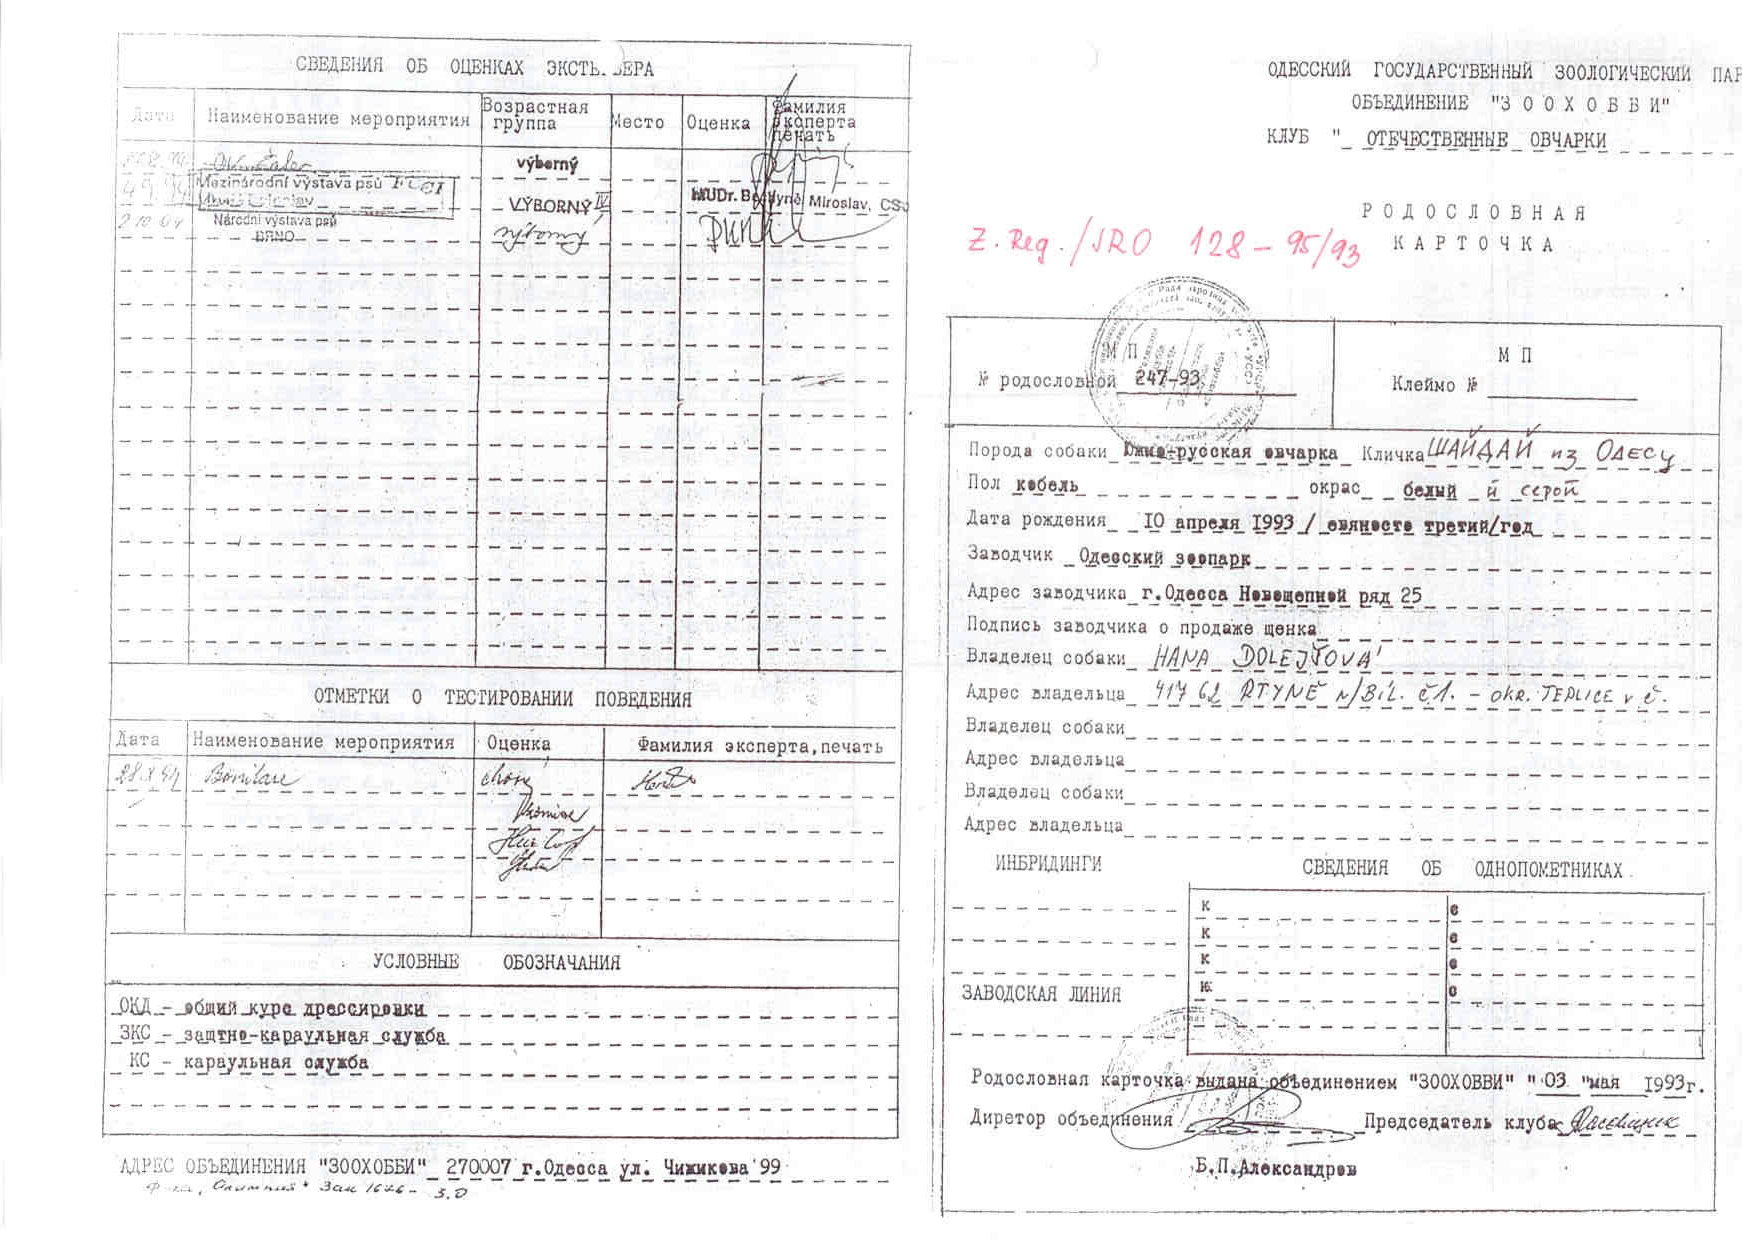 СВЕДЕНИЯ ОБ ОЦЕНКАХ ЭКСТЬ ЬЕРА
Дата Наименование мероприятия Возрастная группа Место Оценка Фамилия эксперта печать
výborný
Mezinárodní výstava psů FCI
VÝBORNÝ IV
MUDr. Miroslav, CS
Národní výstava psů
BRNO
výborný
ОТМЕТКИ О ТЕСТИРОВАНИИ ПОВЕДЕНИЯ
Дата Наименование мероприятия Оценка Фамилия эксперта,печать
Bonitace
УСЛОВНЫЕ ОБОЗНАЧАНИЯ
ОКД - общий курс дрессировки
ЗКС - защтно-караульная служба
КС - караульная служба
АДРЕС ОБЪЕДИНЕНИЯ "ЗООХОББИ" 270007 г.Одесса ул. Чижикова 99
ОДЕССКИЙ ГОСУДАРСТВЕННЫЙ ЗООЛОГИЧЕСКИЙ ПАР
ОБЪЕДИНЕНИЕ "ЗООХОББИ"
КЛУБ " ОТЕЧЕСТВЕННЫЕ ОВЧАРКИ
РОДОСЛОВНАЯ
КАРТОЧКА
Z. Reg./JRO 128-95/93
МП
№ родословной 247-93
МП
Клеймо №
Порода собаки Южно-русская овчарка Кличка ШАЙДАЙ из ОДЕСЦ
Пол кобель окрас белый и серой
Дата рождения 10 апреля 1993 / евяносто третий/год
Заводчик Одесский зоопарк
Адрес заводчика г.Одесса Новощепной ряд 25
Подпись заводчика о продаже щенка
Владелец собаки HANA DOLEJŠOVÁ
Адрес владельца 417 62 RTYNĚ n/BÍL. č1. - okr. TEPLICE v Č.
Владелец собаки
Адрес владельца
Владелец собаки
Адрес владельца
ИНБРИДИНГИ
СВЕДЕНИЯ ОБ ОДНОПОМЕТНИКАХ
К с
К с
К с
К с
ЗАВОДСКАЯ ЛИНИЯ
Родословная карточка выдана объединением "ЗООХОББИ" "03 "мая 1993г.
Директор объединения Председатель клуба
Б.П.Александров